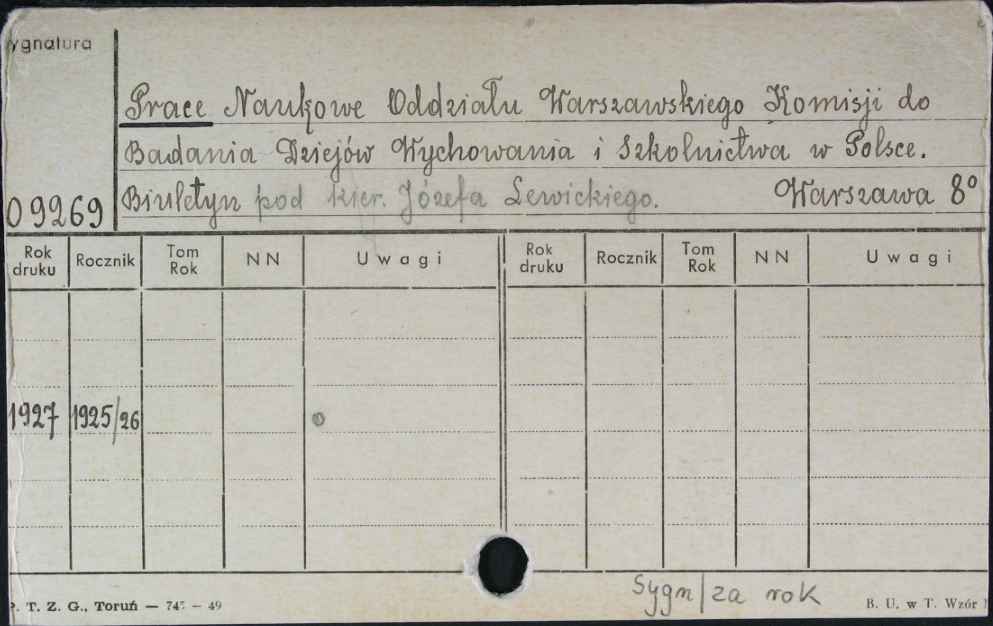 ygnatura
Prace Naukowe Oddziału Warszawskiego Komisji do
Badania Dziejów Wychowania i Szkolnictwa w Polsce.
Biuletyn pod kier. Józefa Lewickiego. Warszawa 8°
09269
Rok druku Rocznik Tom Rok NN Uwagi Rok druku Rocznik Tom Rok NN Uwagi
1927 1925/26 o
Sygn/za rok
. T. Z. G., Toruń — 747 — 49 B. U. w T. Wzór